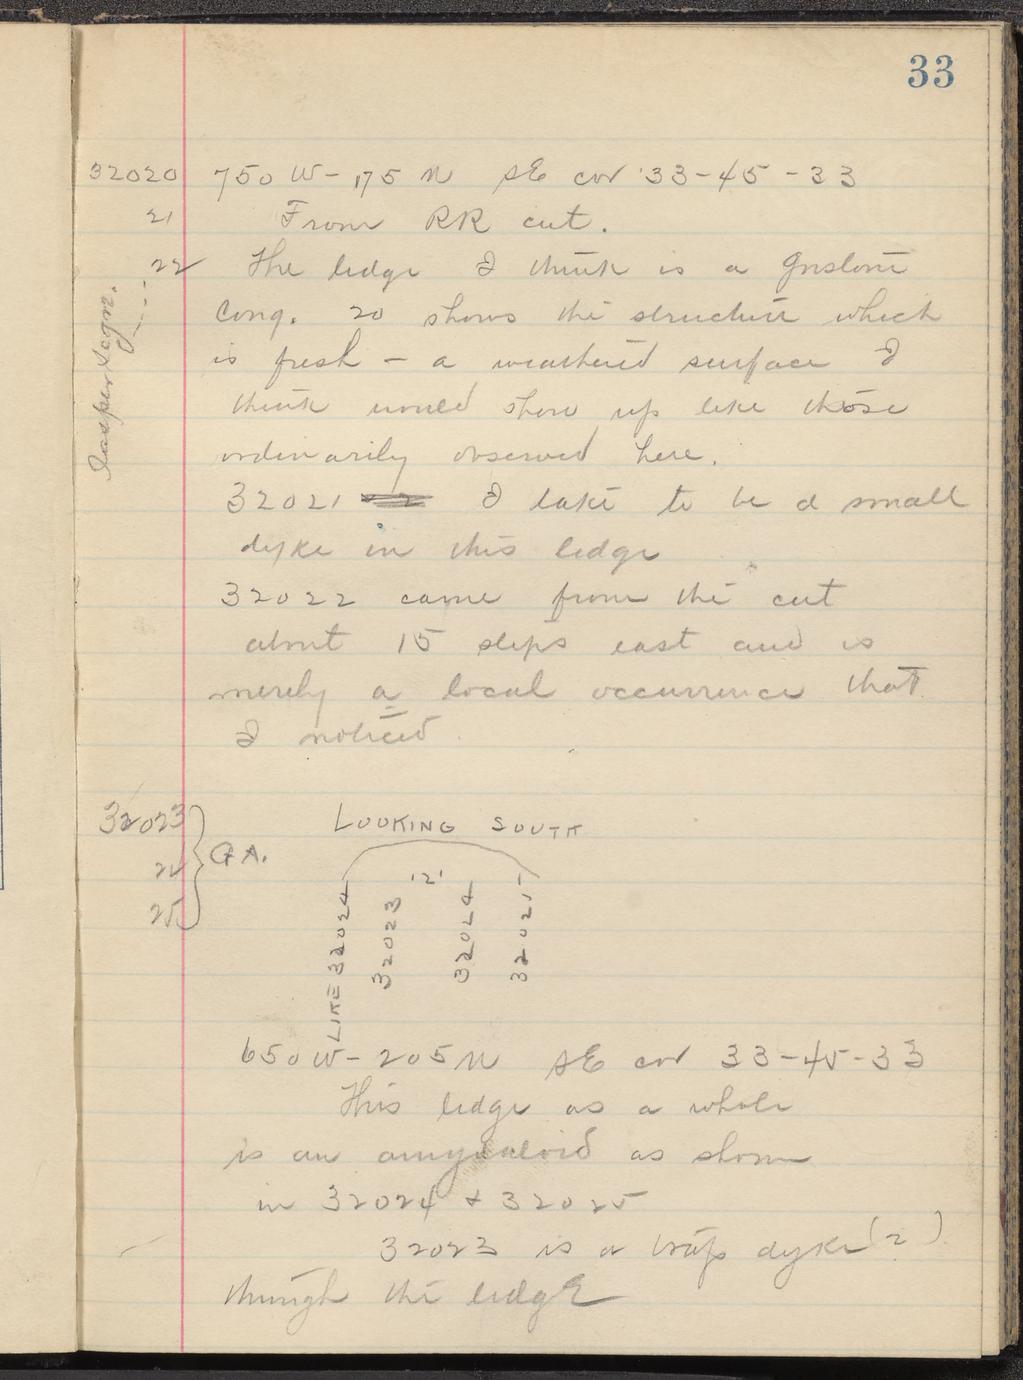 33
32020 750 W - 175 N SE cor 33-45-33
21 From RR cut.
22 The ledge I think is a Gnstone
Cong. 20 shows the structure which
is fresh - a weathered surface I
think would show up like those
ordinarily observed here.
32021 I take to be a small
dyke in this ledge
32022 came from the cut
about 15 steps east and is
merely a local occurrence that
I noticed.
Jasper Segn.
32023
24
25
G A.
LOOKING SOUTH
12'
LIKE 32024
32023
32024
32025
650 W - 205 N SE cor 33-45-33
This ledge as a whole
is an amygdaloid as shown
in 32024 + 32025
32023 is a trap dyke (?)
through the ledge